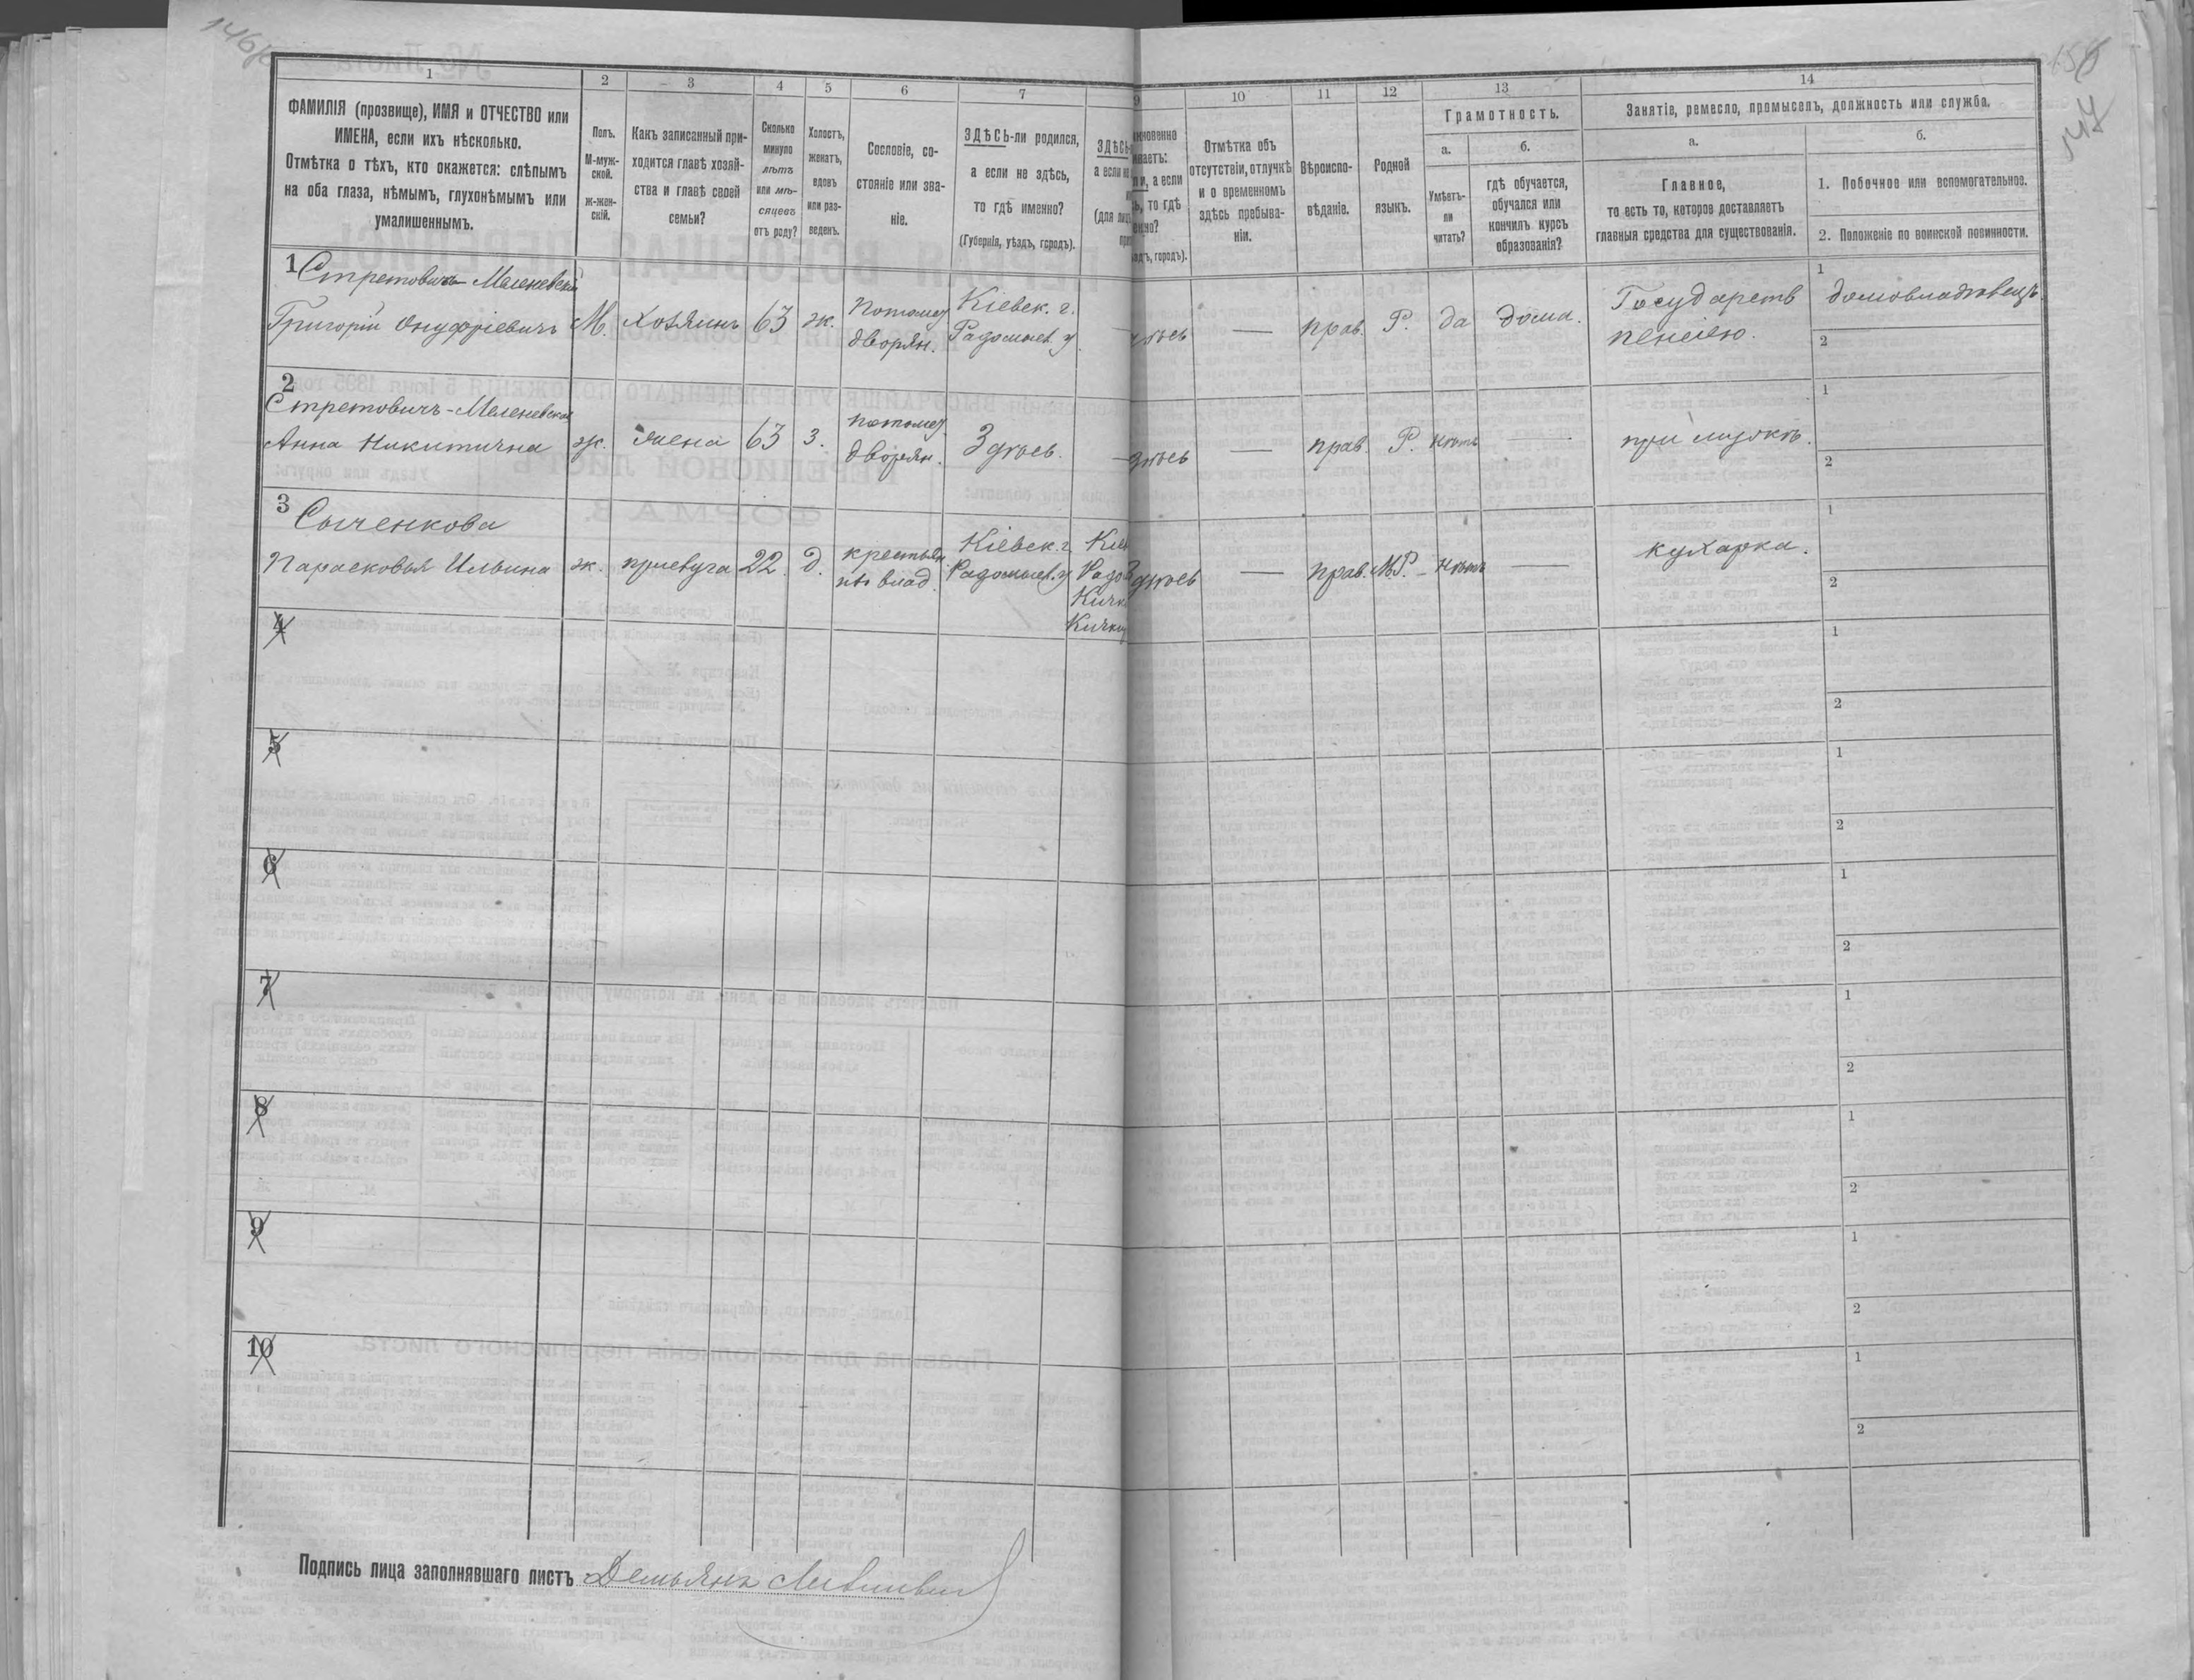 146
1
2
3
4
5
6
7
9
10
11
12
13
14
ФАМИЛІЯ (прозвище), ИМЯ и ОТЧЕСТВО или
ИМЕНА, если ихъ нѣсколько.
Отмѣтка о тѣхъ, кто окажется: слѣпымъ
на оба глаза, нѣмымъ, глухонѣмымъ или
умалишеннымъ.
Полъ.
М-муж-
ской.
ж-жен-
скій.
Какъ записанный при-
ходится главѣ хозяй-
ства и главѣ своей
семьи?
Сколько
минуло
лѣтъ
или мѣ-
сяцевъ
отъ роду?
Холостъ,
женатъ,
вдовъ
или раз-
веденъ.
Сословіе, со-
стояніе или зва-
ніе.
ЗДѢСЬ-ли родился,
а если не здѣсь,
то гдѣ именно?
(Губернія, уѣздъ, городъ).
ЗДѢСЬ
а если не
(для лицъ
Отмѣтка объ
отсутствіи, отлучкѣ
и о временномъ
здѣсь пребыва-
ніи.
Вѣроиспо-
вѣданіе.
Родной
языкъ.
Грамотность.
а.
б.
Умѣетъ-
ли
читать?
гдѣ обучается,
обучался или
кончилъ курсъ
образованія?
Занятіе, ремесло, промыселъ, должность или служба.
а.
б.
Главное,
то есть то, которое доставляетъ
главныя средства для существованія.
1. Побочное или вспомогательное.
2. Положеніе по воинской повинности.
1 Стретовичъ-Меленевскій
Григорій Онуфріевичъ М. хозяинъ 63 ж. Потом. дворян. Кіевск. г. Радомысл. у. — прав. Р. да дома. Государств пенсіею. 1 домовладѣлецъ
2
2
Стретовичъ-Меленевская
Анна Никитична ж. жена 63 з. потом. дворян. Здѣсь. — прав. Р. нѣтъ — при мужѣ. 1
2
3 Сыченкова
Парасковья Ильина ж. прислуга 22. д. крестьян. изъ влад. Кіевск. г. Радомысл. у — прав. М.Р. нѣтъ — кухарка. 1
2
4
1
2
5
1
2
6
1
2
7
1
2
8
1
2
9
1
2
10
1
2
Подпись лица заполнявшаго листъ Демьянъ